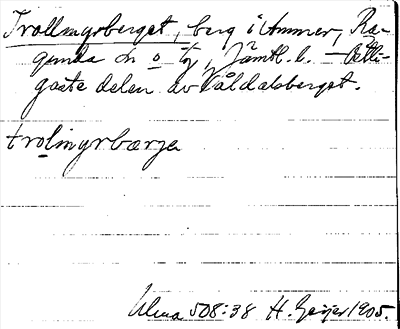 Trollingsberget, berg i Ammer, Ra-
gunda sn o tg, Jämtl. l. — Östli-
gaste delen av Våldalsberget.
trolingrbærje
Ulma 508:38 H. Geijer 1905.